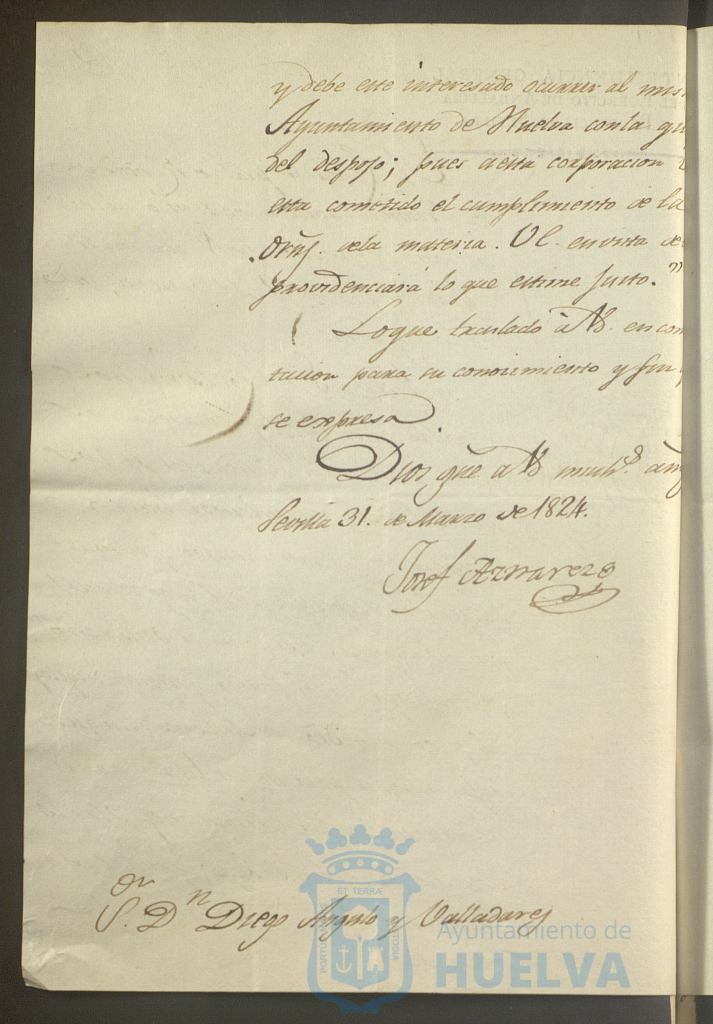 y debe este interesado ocurrir al mis
Ayuntamiento de Huelva con la qu
del despojo; pues a esta corporacion
esta cometido el cumplimiento de la
ornˢ. de la materia. VE. en vista de
providenciará lo que estime justo."
Lo que traslado à VS. en con
tacion para su conocimiento y fin
se expresa.
Dios gue a VS muchˢ. añ
Sevilla 31. de Marzo de 1824.
Josef Aznarez
Sor. Dn Diego Angulo y Valladares
ET TERRAE
PORTUS
CUSTODIA
Ayuntamiento de
HUELVA